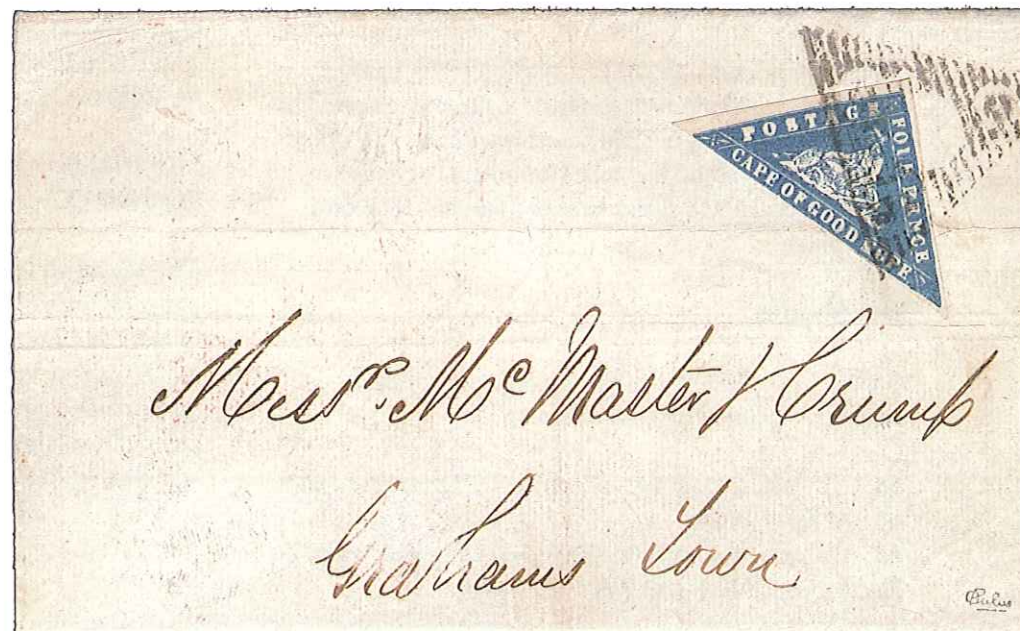 POSTAGE
FOUR PENCE
CAPE OF GOOD HOPE
Messrs. Mc Master & Crump
Grahams Town